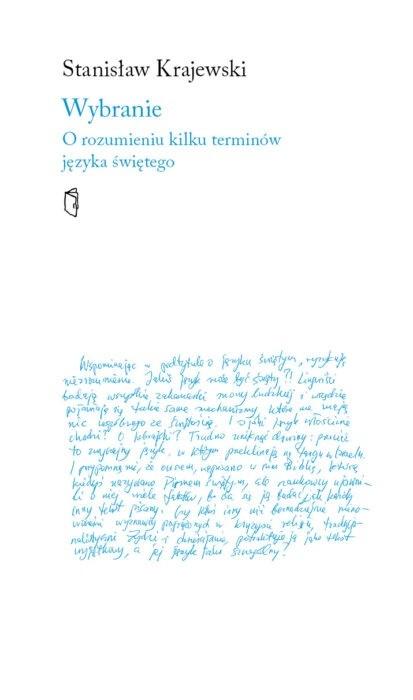 Stanisław Krajewski
Wybranie
O rozumieniu kilku terminów
języka świętego
Wspominając w podtytule o języku świętym, ryzykuję
niezrozumienie. Jakiś język może być święty?! Lingwiści
badają wszystkie zakamarki mowy ludzkiej i wszędzie
pojawiają się takie same mechanizmy, które nie mają
nic wspólnego ze świętością. I o jaki język właściwie
chodzi? O hebrajski? Trudno uniknąć drwiny: przecież
to zwyczajny język, w którym przeklinają na targu w Izraelu.
I przypomną mi, że owszem, napisano w nim Biblię, którą
kiedyś nazywano Pismem Świętym, ale naukowcy
o niej wiele faktów, bo da się ją badać jak każdy
inny tekst pisany. Czy ktoś inny niż
wyznawcy pogrążonych w kryzysie religii,
Żydzi i chrześcijanie, potraktuje ją jako tekst
wyjątkowy, a jej język jako szczególny?